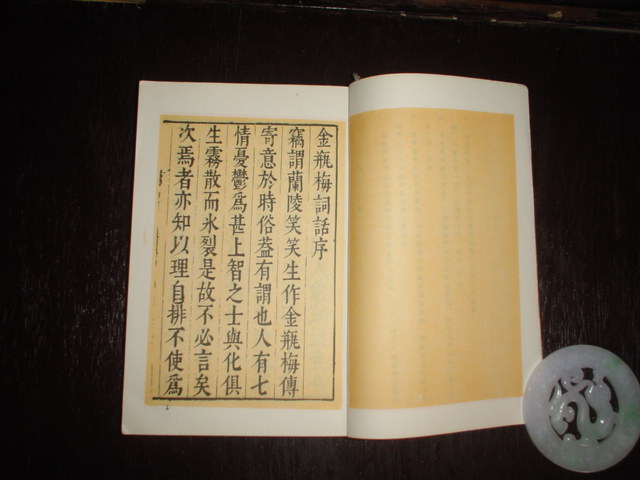 金瓶梅詞話序
竊謂蘭陵笑笑生作金瓶梅傳
寄意於時俗葢有謂也人有七
情憂鬱爲甚上智之士與化俱
生霧散而氷裂是故不必言矣
次焉者亦知以理自排不使爲